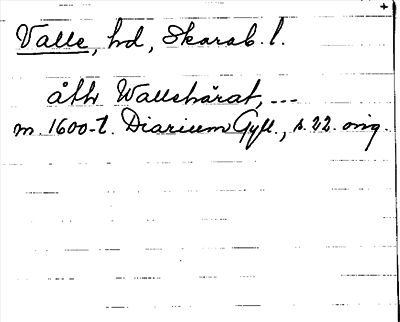 Valle, hd, Skarab. l.
åth Wallshärat, ---
m. 1600-t. Diarium Gyll., s. 22. orig.